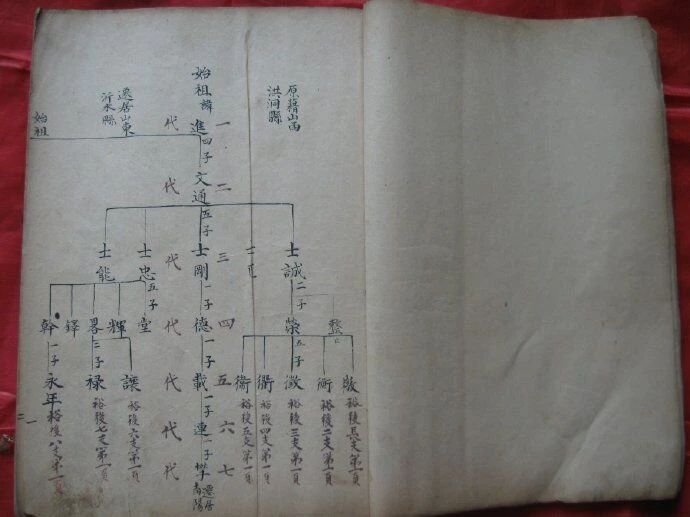 原籍山西
洪洞縣
始祖諱進四子文通五子
遷居山東
沂水縣
始祖
一代
二代
三代
四代
五代
六代
七代
士誠二子
士剛一子
士忠五子
士能
榮五子
德一子
堂
輝
畧二子
鐸
幹一子
載一子
徵
衛
永年
祿
讓
連一子
遷居
南陽
裕後長支第一頁
裕後二支第一頁
裕後三支第一頁
裕後四支第一頁
裕後五支第一頁
裕後六支第一頁
裕後七支第一頁
裕後八支第一頁